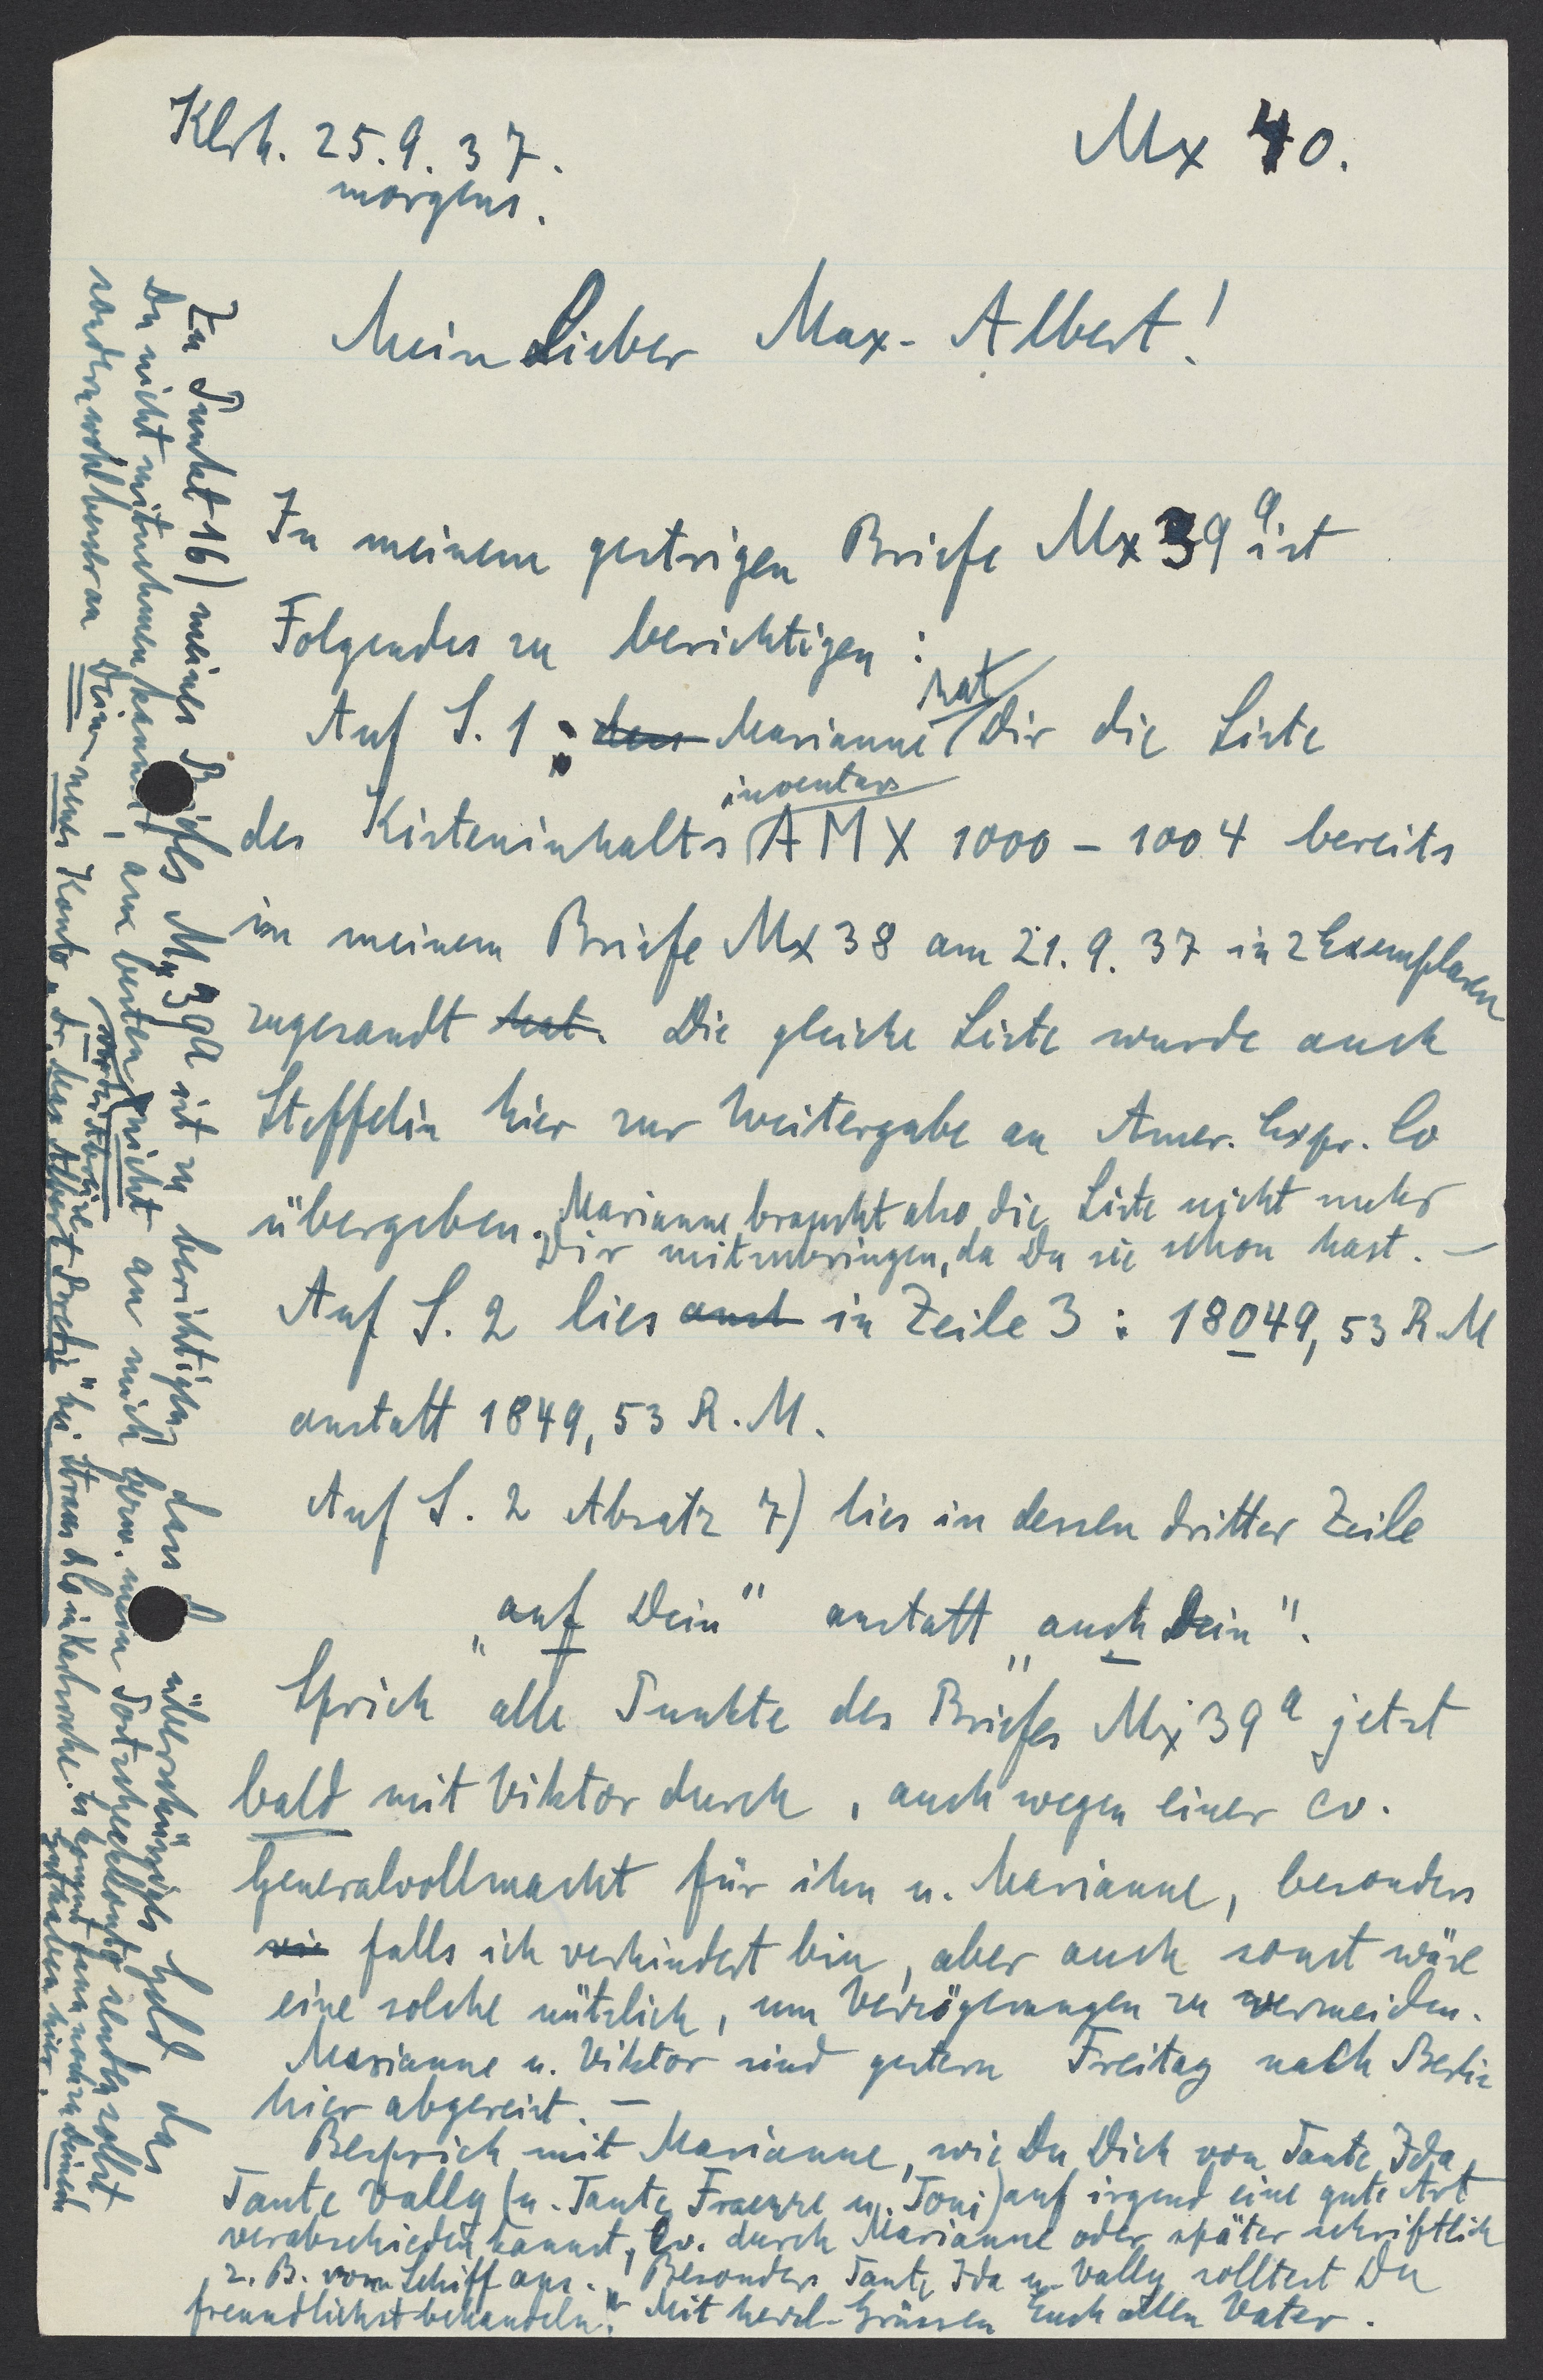 Klrh. 25.9.37.
morgens.
Mx 40.
Mein Lieber Max-Albert!
In meinem gestrigen Briefe Mx 39a ist
Folgendes zu berichtigen:
Auf S. 1: dass Marianne hat Dir die Liste
des Kisteninhalts inventars AMX 1000 - 1004 bereits
in meinem Briefe Mx 38 am 21.9.37 in 2 Exemplaren
zugesandt hat. Die gleiche Liste wurde auch
Steffelin hier zur Weitergabe an Amer. Expr. Co
übergeben. Marianne braucht also die Liste nicht mehr
Dir mitzubringen, da Du sie schon hast. —
Auf S. 2 lies auch in Zeile 3: 18049,53 R.M
anstatt 1849,53 R.M.
Auf S. 2 Absatz 7) lies in dessen dritter Zeile
"auf Dein" anstatt "auch Dein".
Sprich alle Punkte des Briefes Mx 39a jetzt
bald mit Viktor durch, auch wegen einer ev.
Generalvollmacht für ihn u. Marianne, besonders
wie falls ich verhindert bin, aber auch sonst wäre
eine solche nützlich, um Verzögerungen zu vermeiden.
Marianne u. Viktor sind gestern Freitag nach Berlin
hier abgereist. —
Besprich mit Marianne, wie Du Dich von Tante Ida,
Tante Vally (u. Tante Fraenze u. Toni) auf irgend eine gute Art
verabschieden kannst, Ev. durch Marianne oder später schriftlich
z. B. vom Schiff aus. Besonders Tante Ida u. Vally solltest Du
freundlichst behandeln! Mit herzl. Grüssen Euch allen Vater.
Zu Punkt 16) meines Briefes Mx 39a ist zu berichtigen, dass überschüssiges Geld das
Du nicht mitnehmen kannst, am besten nicht an mich bezw. mein Postscheckkonto senden sollst
vorsichtshalber
sondern wohl besser an Dein neues Konto "Dr. Max Albert Bredig" bei Straus & Co in Karlsruhe. Es kommt dann noch zu deinem
Guthaben hier.